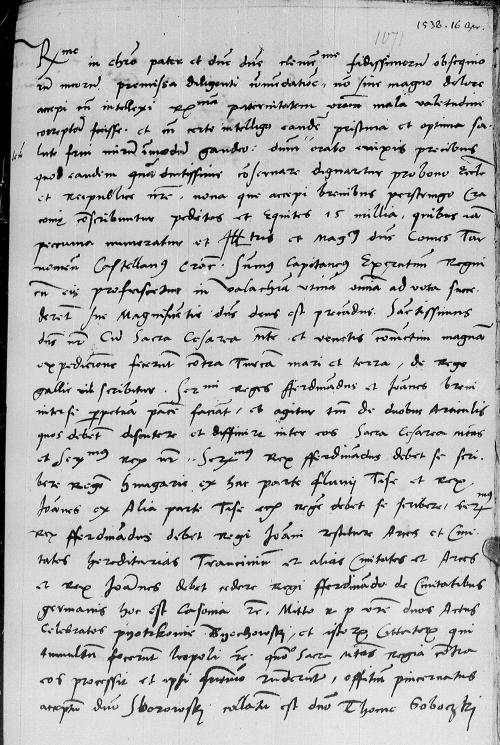 1538. 16 Apr.
1071
R.me in chro pater et dne dne clemme fidissimorum obsequio
rum meorum premissa diligenti comendatioe, no sine magno dolore
accepi et intellexi Rmam paternitatem vram mala valetudine
correptam fuisse. et cum certe intelligo eandem pristina et optima sa
lute frui mirum inmodum gaudeo: deum orabo enixis precibus
quod eandem quam diutissime conservare dignaretur pro bono Eccle
et Reipublice nre. nova que accepi brevibus perstringo Cra
covie conscribuntur pedites et Equites 15 millia, quibus iam
pecunia numeratur et et Magcus dns Comes Tar
nowien Castellanus Cracovien. Sumus Capitaneus Exercituum Regni
cum eis proficiscetur in Valachiam utinam omnia ad vota succe
derent sue Magnificentie deus est precandus. Sanctissimus
dns nr Cum Sacra Cesarea mte et venetis comunem magnam
expeditionem fecerunt contra Turcam mari et terra, de Rege
gallie nil scribitur. Sermi Reges fferdinandus et Joannes brevi
inter se perpetuam pacem faciant, et agitur tm de duobus Articulis
quos debent discutere et diffinire inter eos Sacra Cesarea mtas
et Sermus Rex nr. Sermus Rex fferdinandus debet se scri
bere Regem Hungarie ex hac parte fluvij Tise et Rex
Joannes ex Alia parte Tise regem debet se scribere, Sermus
Rex fferdinandus debet Regi Joani restituere Arces et Civi
tates hereditarias Trencinium et alias Civitates et Arces
et Rex Joannes debet cedere Regi fferdinando de Civitatibus
germanis hoc est Casovia etc. Mitto R p vre duos Actus
Celebratos pyotrkovie et istorum qui
tumultum fecerunt leopoli etc. quomo Sacra mtas Regia contra
eos processit et ipsi, offitium pincernatus
acceptum dno Sborowskj collatum est dno Thome Soboczkj